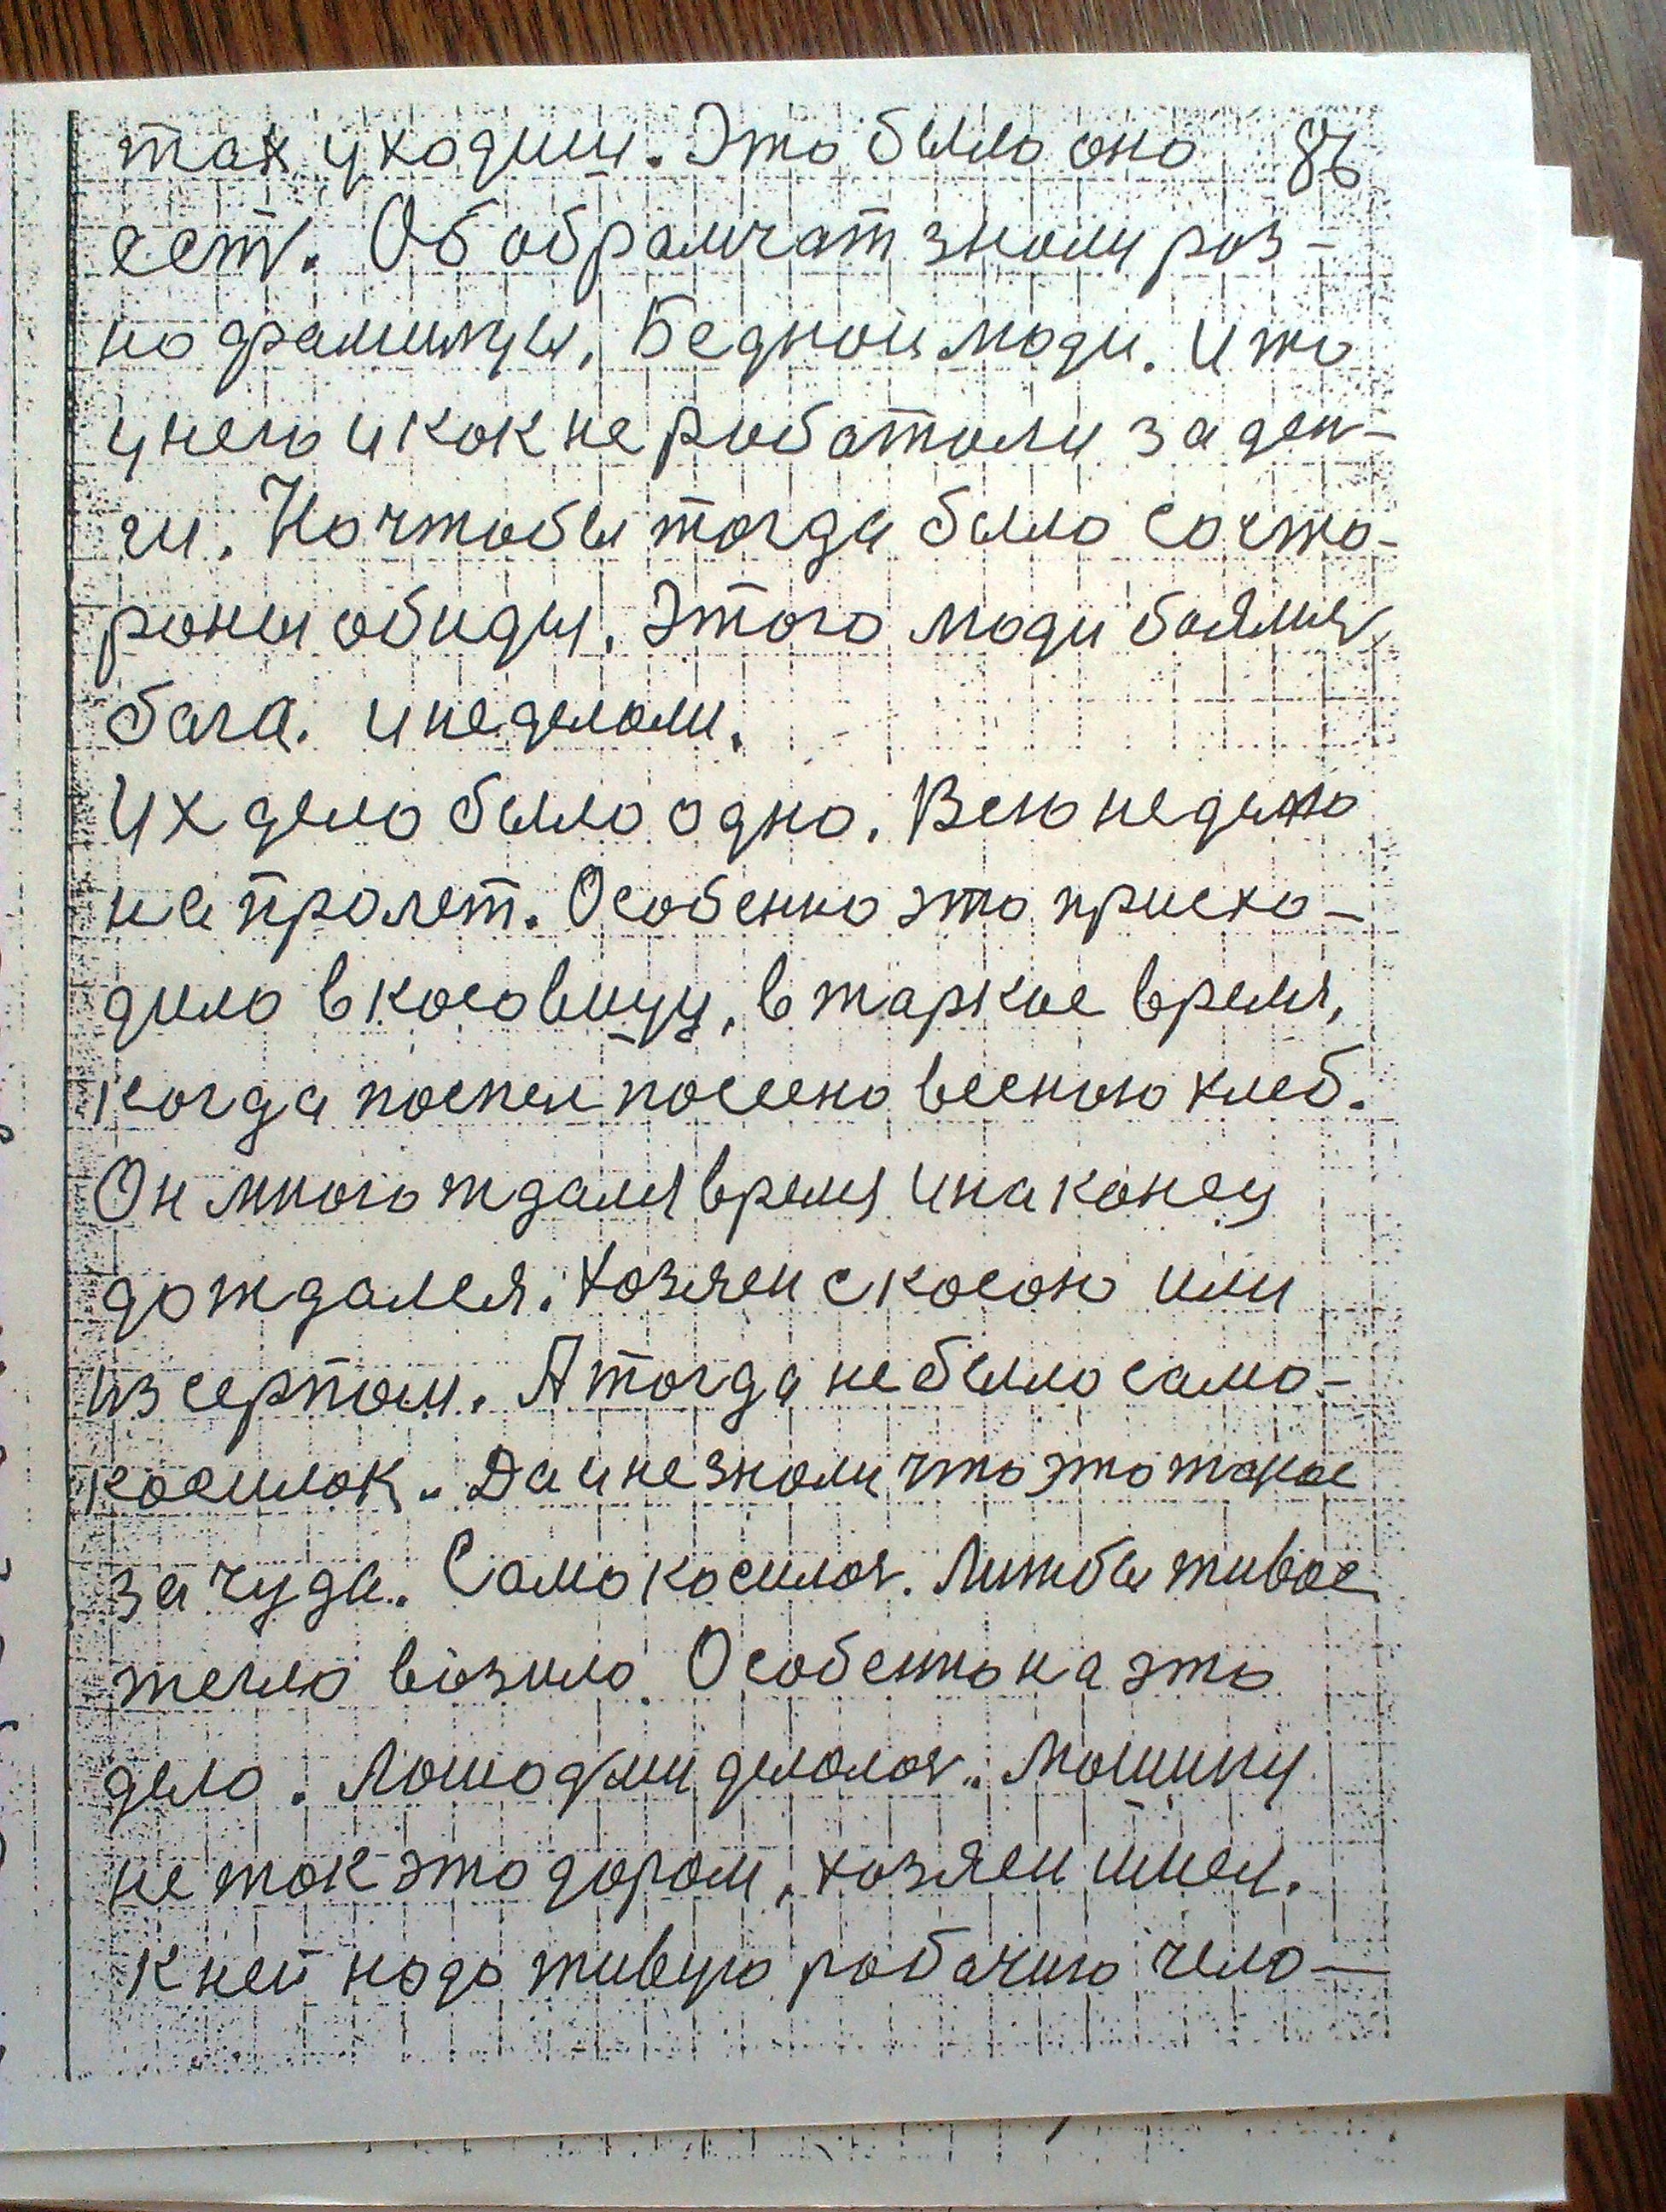 так уходили. Это было оно 86
есть. Об обрамчат знали раз-
но фамилии, Бедной люди. И то
у него и как не работали за день-
ги. Но чтобы тогда было со что-
роны обиды. Этого люди боялись
бога. и не делали.
Их дело было одно. Всю неделю
на пролет. Особенно это присхо-
дило в косовицу, в жаркое время,
когда поспел посеено весною хлеб.
Он много ждался время и на конец
дождался. Хозяен с косою или
из серпом. А тогда не было само-
косилок. Да и не знали что это такое
за чуда. Самокосилоч. Лижбы живое
тегло возило. Особенно на это
дело. Лошадьми делалоч. Машину
не так это даром, хозяен имел.
К ней надо живую рабачию чело-